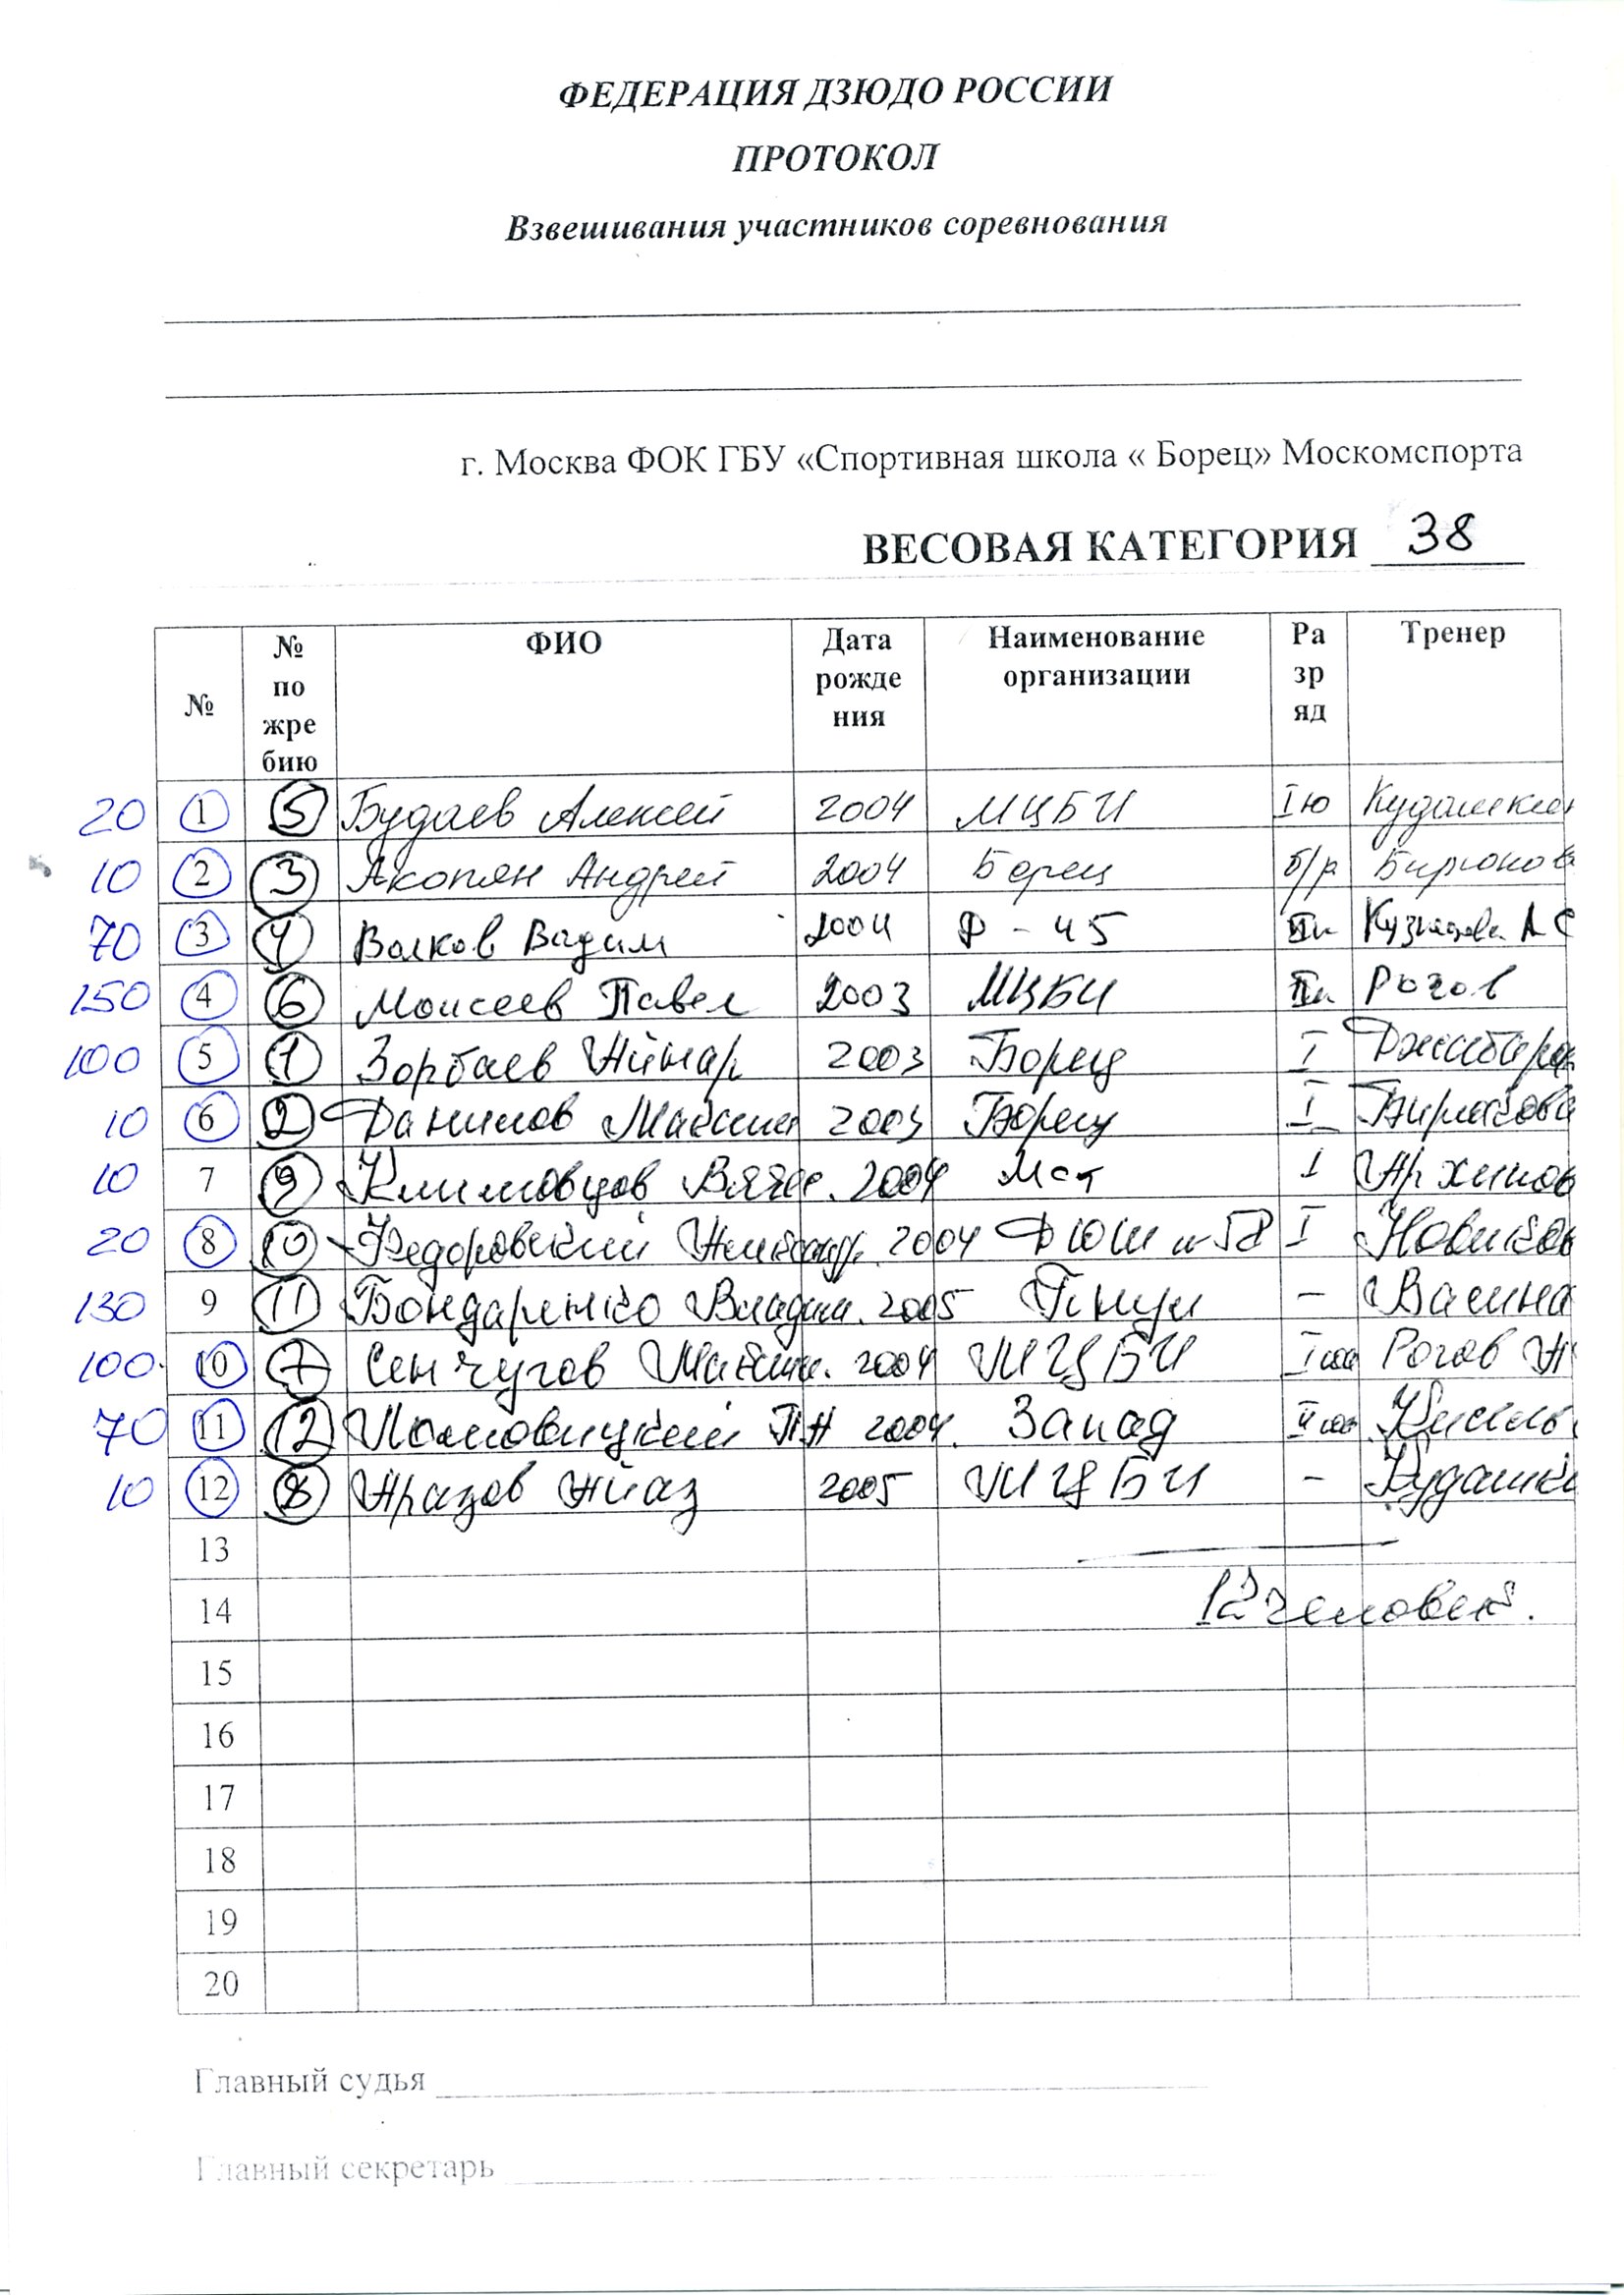 ФЕДЕРАЦИЯ ДЗЮДО РОССИИ
ПРОТОКОЛ
Взвешивания участников соревнования
г. Москва ФОК ГБУ «Спортивная школа « Борец» Москомспорта
ВЕСОВАЯ КАТЕГОРИЯ 38
№ № по жре бию ФИО Дата рожде ния Наименование организации Ра зр яд Тренер
20 1 5 Будаев Алексей 2004 МЦБИ I ю
10 2 3 Акопян Андрей 2004 Борец б/р Бирюков
70 3 4 Волков Вадим 2004 Ф - 45
150 4 6 Моисеев Павел 2003 МЦБИ Рогов
100 5 1 Зорбаев 2003 Борец I
10 6 2 Данилов Максим 2003 Борец I
10 7 9 Климовцов Вячес. 2004 I Архипов
20 8 10 Федоровский 2004 I Новиков
130 9 11 Бондаренко Владим. 2005 – Васина
100 10 7 Сенчугов Максим. 2004 МЦБИ I Рогов А
70 11 12 2004. Запад II
10 12 8 2005 МЦБИ –
13
14 12 человек.
15
16
17
18
19
20
Главный судья
Главный секретарь